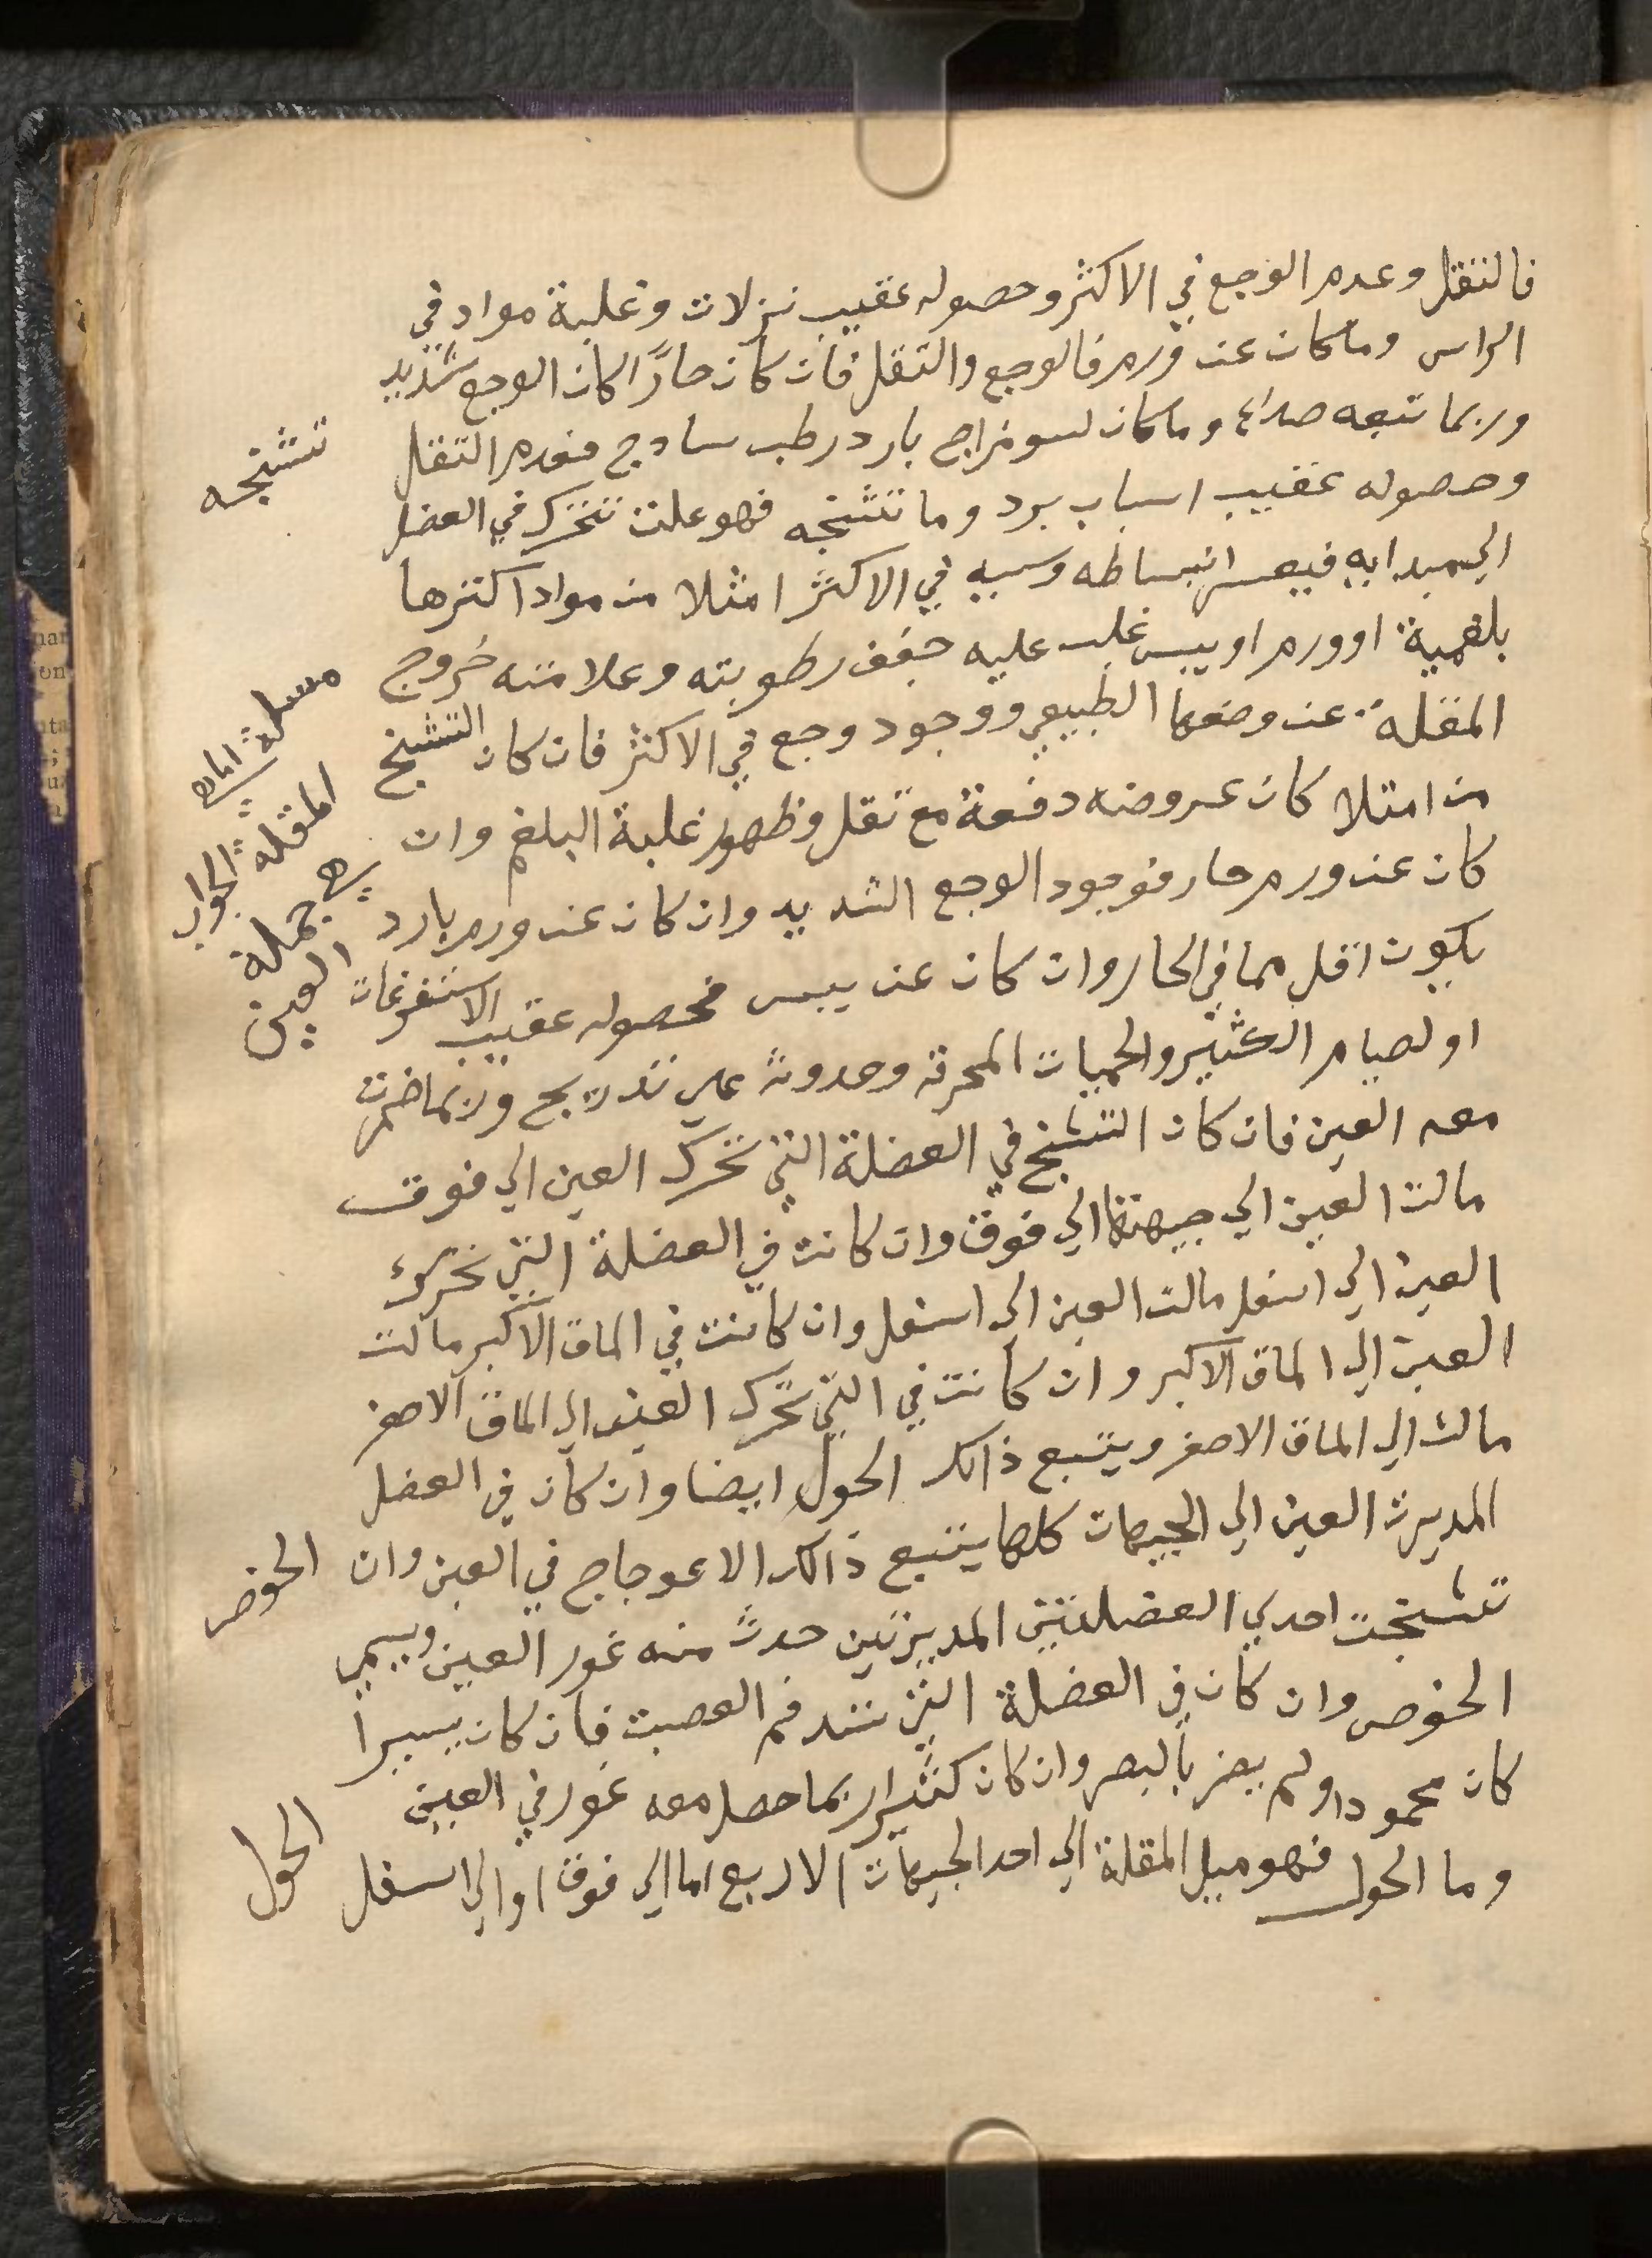 فالتقل وعدم الوجع في الاكثر وحصوله عقيب نزلات وغلبة مواد في
الراس وماكان عن ورم فالوجع والتقل فان كان حارًا كان الوجع شديد
وربما تبعه صداع وماكان لسو مزاج بارد رطب سادج فعدم التقل
وحصوله عقيب اسباب برد وما تشنجه فهو علت تتحرك في العضل
الي مبدايه فيعسر انبساطه وسببه في الاكثر امتلا من مواد اكترها
بلغمية او ورم او يبس غلب عليه جفف رطوبته وعلامته خروج
المقلة عن وضعها الطبيعي ووجود وجع في الاكثر فان كان التشنج
من امتلا كان عروضه دفعة مع تقل وظهور غلبة البلغم وان
كان عن ورم حار فوجود الوجع الشديد وان كان عن ورم بارد
يكون اقل مما في الحار وان كان عن يبس فحصوله عقيب الاستفرغات
او لصيام الكثير والحميات المحرقه وحدوثه علي تدريج وربما ضمرت
معه العين فان كان التشنج في العضلة التي تحرك العين الي فوق
مالت العين الي جيهتها الي فوق وان كانت في العضلة التي تحرك
العين الي اسفل مالت العين الي اسفل وان كانت في الماق الاكبر مالت
العين الي الماق الاكبر وان كانت في التي تحرك العين الي الماق الاصغر
مالت الي الماق الاصغر ويتبع ذالك الحول ايضا وان كان في العضل
المديرت العين الي الجيهات كلها يتبع ذالك الاعوجاج في العين وان
تشنجت احدي العضلتين المديرتين حدث منه غور العين ويسمي
الخوص وان كان في العضلة التي تشد فم العصبت فان كان يسيرا
كان محمودا ولم يضر بالبصر وان كان كثيرا ربما حصل معه غور في العين
وما الحول فهو ميل المقلة الي احد الجيهات الاربع اما الي فوق او الي اسفل
تشنجه
مسلة
المقله الجواب
هي جملة
العين
الخوص
الحول